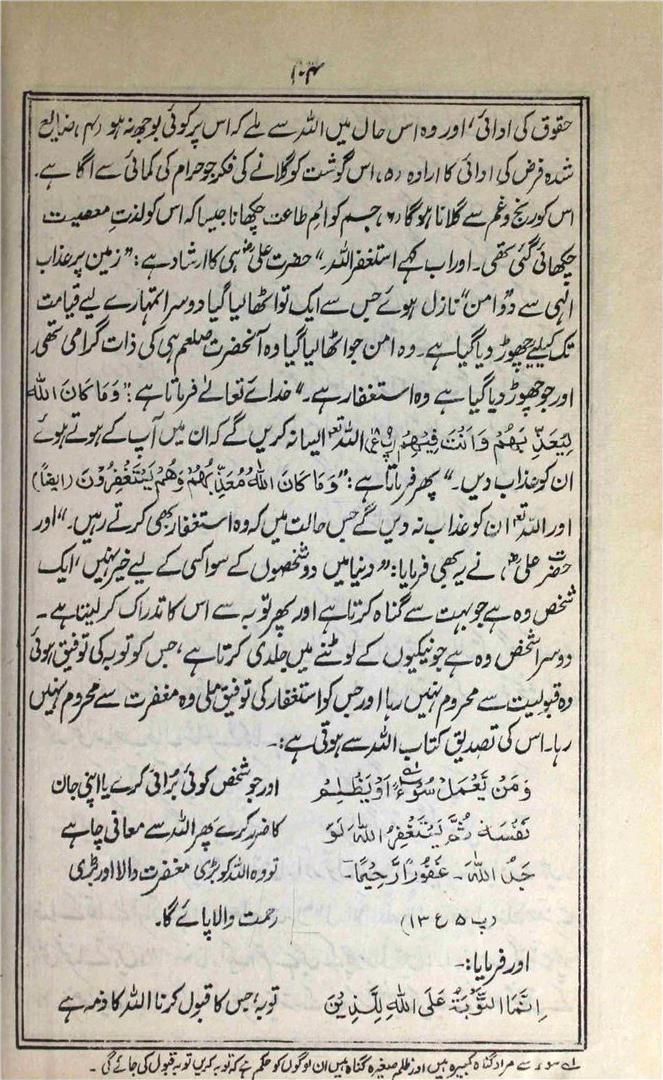 ۱۰۴
حقوق کی ادائی، اور وہ اس حال میں اللہ سے ملے کہ اس پر کوئی بوجھ نہ ہو (۴) ضایع
شدہ فرض کی ادائی کا ارادہ (۵) اس گوشت کو گلانے کی فکر جو حرام کی کمائی سے اگا ہے۔
اس کو رنج و غم سے گلانا ہوگا (۶) جسم کو الم طاعت چکھانا جیسا کہ اس کو لذتِ معصیت
چکھائی گئی تھی۔ اور اب کہے استغفر اللہ۔" حضرت علیؓ ہی کا ارشاد ہے: "زمین پر عذاب
الٰہی سے دو "امن" نازل ہوئے جس سے ایک تو اٹھا لیا گیا دوسرا تمہارے لیے قیامت
تک کیلئے چھوڑ دیا گیا ہے۔ وہ امن جو اٹھا لیا گیا وہ آنحضرت صلعم ہی کی ذات گرامی تھی
اور جو چھوڑ دیا گیا ہے وہ استغفار ہے۔" خدائے تعالےٰ فرماتا ہے: "وَمَا كَانَ اللهُ
لِيُعَذِّبَهُمْ وَأَنْتَ فِيهِمْ (پ۹ ع۱۸) اللہ تعہ ایسا نہ کریں گے کہ ان میں آپ کے ہوتے ہوئے
ان کو عذاب دیں۔" پھر فرماتا ہے: "وَمَا كَانَ اللهُ مُعَذِّبَهُمْ وَهُمْ يَسْتَغْفِرُونَ (ایضاً)
اور اللہ تعہ ان کو عذاب نہ دیں گے جس حالت میں کہ وہ استغفار بھی کرتے رہیں۔" اور
حضرت علیؓ نے یہ بھی فرمایا: "دنیا میں دو شخصوں کے سوا کسی کے لیے خیر نہیں، ایک
شخص وہ ہے جو بہت سے گناہ کرتا ہے اور پھر توبہ سے اس کا تدراک کر لیتا ہے۔
دوسرا شخص وہ ہے جو نیکیوں کے لوٹنے میں جلدی کرتا ہے، جس کو توبہ کی توفیق ہوئی
وہ قبولیت سے محروم نہیں رہا اور جس کو استغفار کی توفیق ملی وہ مغفرت سے محروم نہیں
رہا۔ اس کی تصدیق کتاب اللہ سے ہوتی ہے:۔
وَمَنْ يَعْمَلْ سُوْءًا اَوْ يَظْلِمْ اور جو شخص کوئی برُائی کرے یا اپنی جان
نَفْسَهٗ ثُمَّ يَسْتَغْفِرِ اللهَ لَوَ کا ضرر کرے پھر اللہ سے معافی چاہے
جَدُ اللهَ۔ غَفُوْرًا رَّحِيْمًا۔ تو وہ اللہ کو بڑی مغفرت والا اور بڑی
(پ ۵ ع ۱۳) رحمت والا پائے گا۔
اور فرمایا:۔
اِنَّمَا التَّوْبَةُ عَلَى اللهِ لِلَّذِيْنَ توبہ، جس کا قبول کرنا اللہ کا ذمہ ہے
لے سوء سے مراد گناہ کبیرہ ہیں اور ظلم صغیرہ گناہ ہیں ان لوگوں کو حکم ہے کہ توبہ کریں توبہ قبول کی جائے گی۔